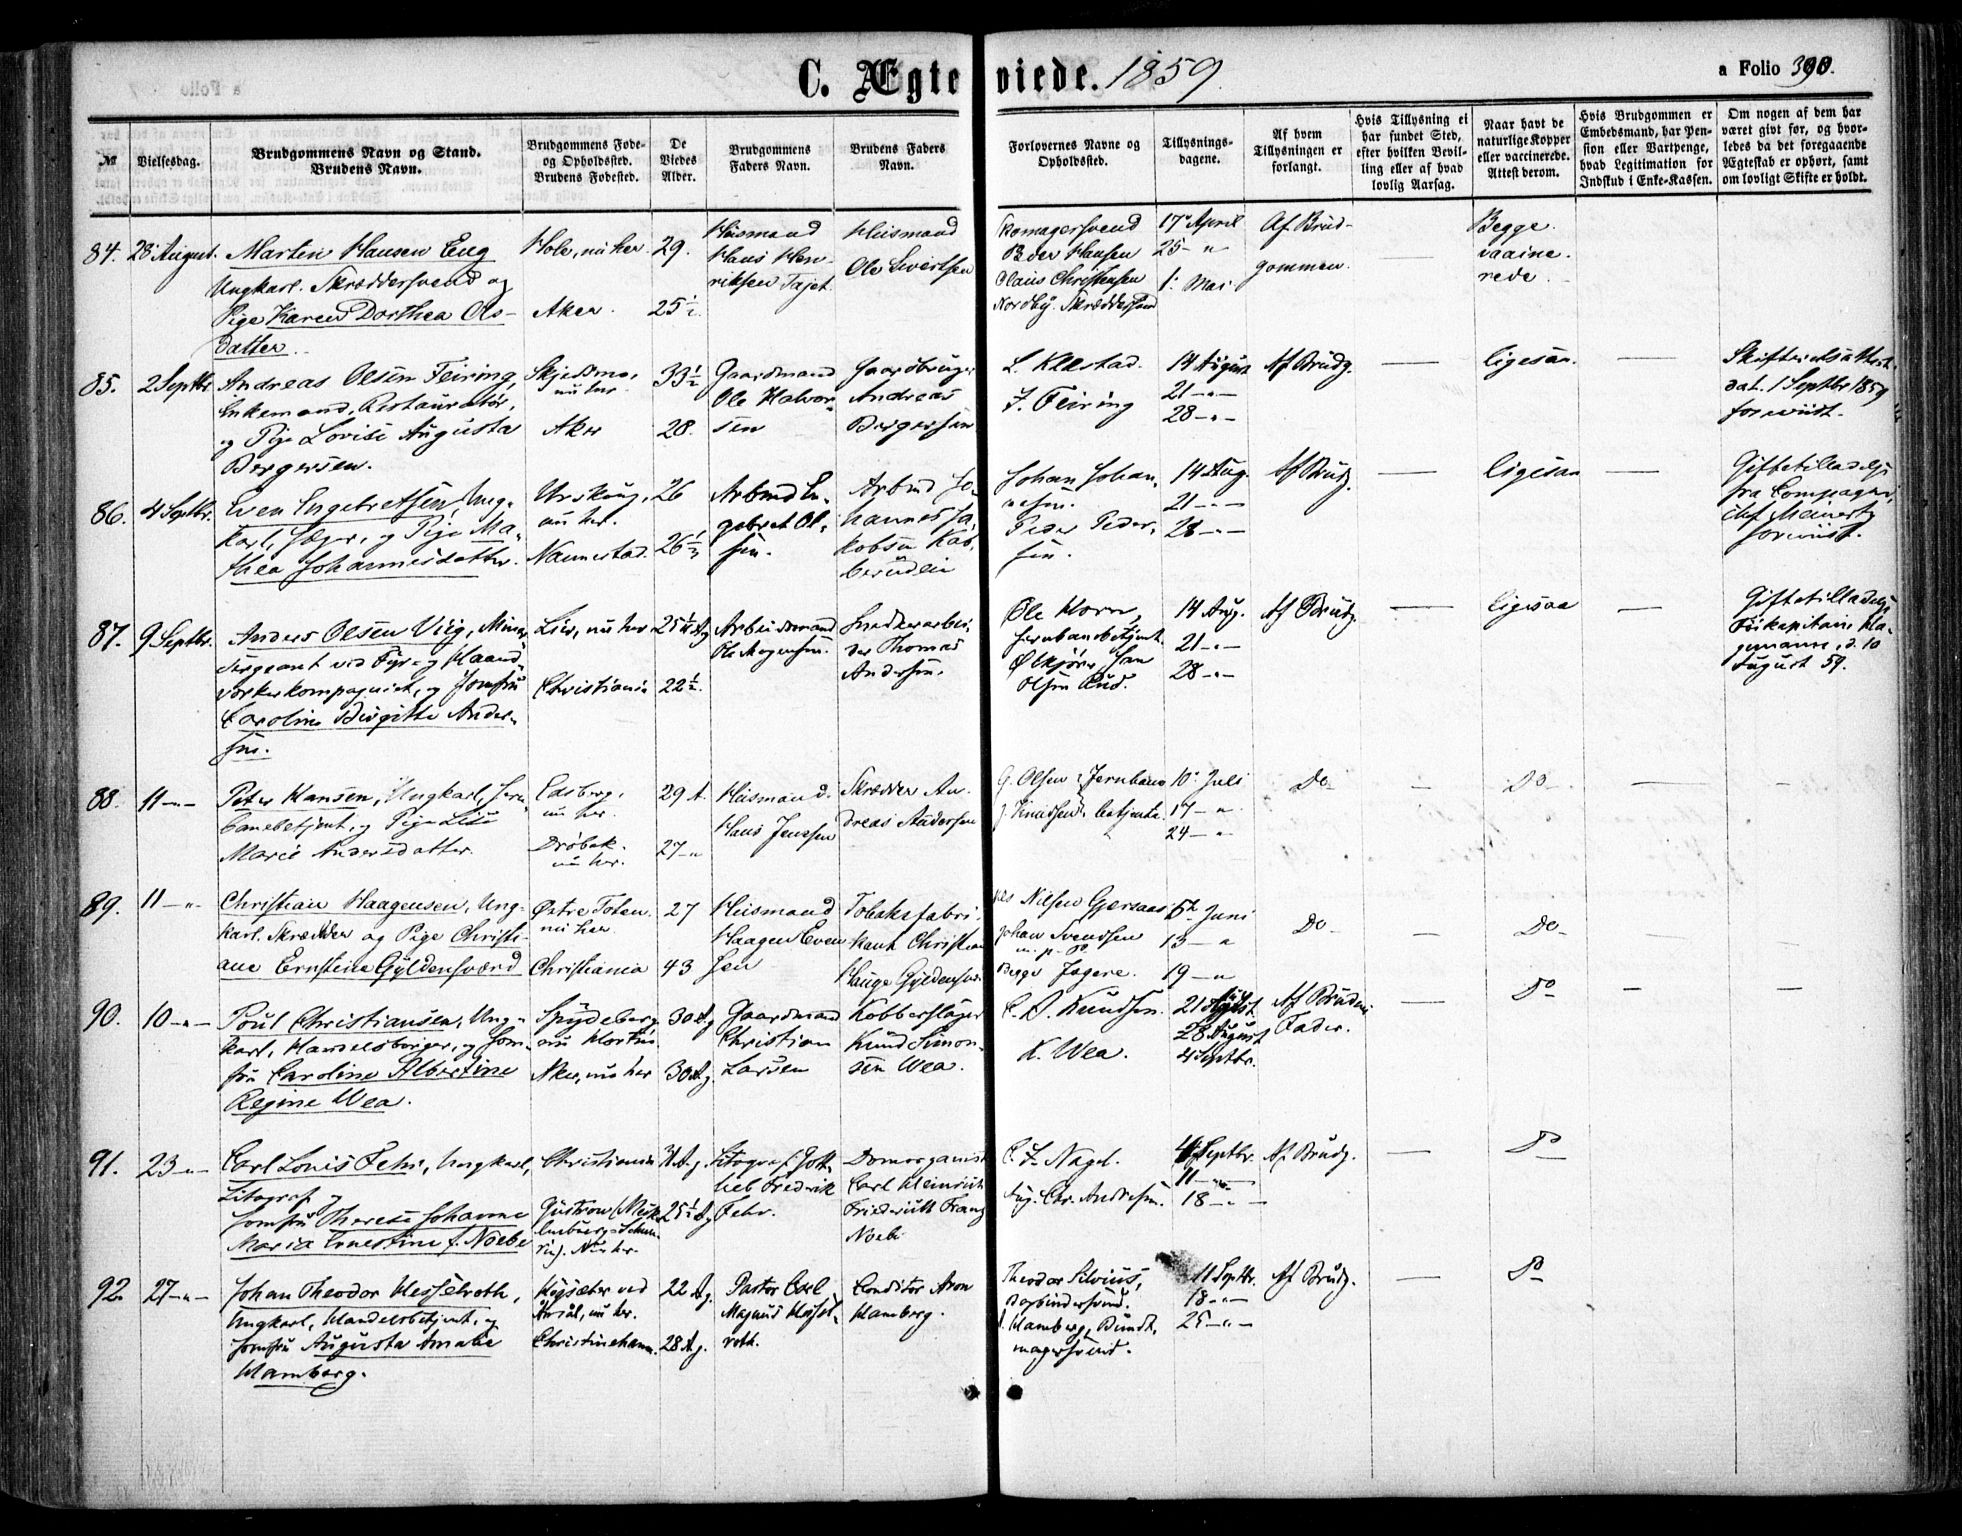 C. Ægteviede. 1859.
a Folio 390.
№
Vielsesdag.
Brudgommens Navn og Stand.
Brudens Navn.
Brudgommens Føde-
og Opholdssted.
Brudens Fødested.
De
Viedes
Alder.
Brudgommens
Faders Navn.
Brudens Faders
Navn.
Forlovernes Navne og
Opholdssted.
Tillysnings-
dagene.
Af hvem
Tillysningen er
forlangt.
Hvis Tillysning ei
har fundet Sted,
efter hvilken Bevil-
ling eller af hvad
lovlig Aarsag.
Naar havt de
naturlige Kopper
eller vaccinerede.
Attest derom.
Hvis Brudgommen er
Embedsmand, har Pen-
sion eller Vartpenge,
hvad Legitimation for
Indskud i Enke-Kassen.
Om nogen af dem har
været givt før, og hvor-
ledes da det foregaaende
Ægteskab er ophørt, samt
om lovligt Skifte er holdt.
84. 28 August.
Marten Hansen Eng
Ungkarl. Skræddersvend og
Pige Karen Dorthea Ols-
datter.
Hole, nu her
Aker.
29.
25½.
Huusmand
Hans Hen-
riksen Tajet
Huusmand
Ole Sivertsen
Skomagersvend
Peder Hansen
Claus Christensen
Nordby. Skræddersvend
17 April
25 - "
1. Mai.
Af Brud-
gommen.
Begge
vaccine-
rede.
85. 2 Septbr.
Andreas Olsen Feiring,
Enkemand, Restauratør,
og Pige Lovise Augusta
Bergersen.
Skjedsmo,
nu her
Aker
33½
28.
Gaardmand
Ole Halvor-
sen
Gaardbruger
Andreas
Bergersen
L. Kløstad.
J. Feiring
14 August
21 - " -
28 - " -
Af Brudg.
—
ligesaa.
—
Skifteretsattest
dat. 1 Septbr 1859
foreviist.
86. 4 Septbr.
Even Engebretsen, Ung-
karl, Jæger, og Pige Ma-
thea Johannesdatter.
Urskoug,
nu her.
Nannestad.
26
Arbmd En-
gebret Ol-
sen.
Arbmd Jo-
hannes Ja-
kobsen
Johan Johan-
nesen.
Peder Peder-
sen.
14 Aug.
21 - " -
28 - " -
Af Brudg.
—
ligesaa
—
Giftetilladelse
fra Compagni-
chef Meinertz
foreviist.
87. 9 Septbr.
Anders Olsen Viig, Minør-
sergeant ved Fyr- og Haand-
værkerkompagniet, og Jomfru
Caroline Birgitte Ander-
sen.
Lier, nu her
Christiania
22½.
Arbeidsmand
Ole Mogensen.
Snedkerarbei-
der Thomas
Andersen.
Ole Horn,
Jernbanebetjent.
Ølkjører Jan
Olsen Rud.
14 Aug.
21 - " -
28 - " -
Af Brudg.
—
ligesaa
—
Giftetilladelse
August 59.
88. 11 - " -
Peter Hansen, Ungkarl, Jern-
banebetjent, og Pige Lise
Marie Andersdatter.
Edsberg,
nu her.
Drøbak.
nu her.
29 A.
27 - "
Huusmand.
Hans Jenssen
Skrædder An-
dreas Andersen
G. Olsen
J. Knudsen
Jernbane
betjente.
10 Juli
17 - "
24 - "
Do
—
Do
—
89. 11 - " -
Christian Haagensen, Ung-
karl. Skrædder og Pige Christi-
ane Ernstine Gyldensværd
Østre Toten
nu her
Christiania
27
43
Huusmand
Haagen Even
sen
Tobaksfabri-
kant Christian
Hauge Gyldensvær
Nilsen Gjersaas
Johan Svendsen
Begge Jægere.
5 Juni
13 - "
19 - "
Do
—
Do
—
90. 10 - " -
Poul Christiansen, Ung-
karl, Handelsborger, og Jom-
fru Caroline Albertine
Regine Wea.
Spydeberg
nu Horten.
Aker, nu her
30 A.
30 A.
Gaardmand
Christian
Larsen
Kobberslager
Knud Simon-
sen Wea.
C. A. Knudsen.
K. Wea.
21 August
28 August
4 Septbr.
Af Brudens
Fader.
—
Do
—
91. 23 - " -
Carl Louis Fehr, Ungkarl,
Litograf og
Jomfru Therese Johanne
Maria Ernestine f. Noebe
Christiania
Güstrow (Mek-
lenburg-Schwe-
rin). Nu her.
31 A.
25½ A.
Litograf Gott-
lieb Frederik
Fehr.
Domorganist
Carl Heinrich
Friedrich Franz
Noebe
C. F. Nagel.
Aug. Chr. Andresen.
4 Septbr.
11 - " -
18 - " -
Af Brudg.
—
Do
92. 27 - " -
Johan Theodor Hesselroth,
Ungkarl, Handelsbetjent, og
Jomfru Augusta Amalie
Hamberg.
Høgsæter ved
Åmål, nu her.
Christinehamn.
22 A.
28 A.
Pastor Carl
Magnus Hessel-
roth.
Conditor Aron
Hamberg.
Theodor Silvius,
Bogbindersvend.
Hamberg, Bundt-
magersvend.
11 Septbr.
18 - " -
25 - " -
Af Brudg.
—
Do